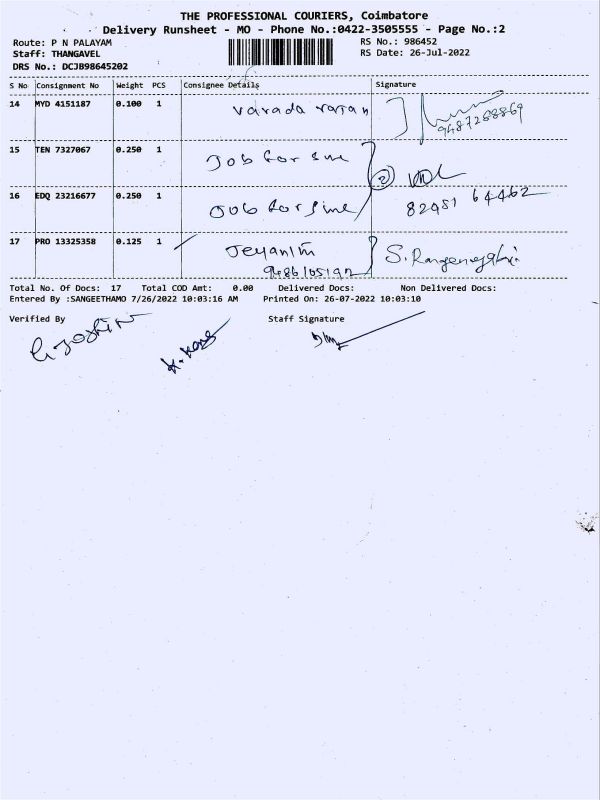 THE PROFESSIONAL COURIERS, Coimbatore
Delivery Runsheet - MO - Phone No.:0422-3505555 - Page No.:2
Route: P N PALAYAM RS No.: 986452
Staff: THANGAVEL RS Date: 26-Jul-2022
DRS No.: DCJB98645202
S No Consignment No Weight PCS Consignee Details Signature
14 MYD 4151187 0.100 1 varada rajan
9487268869
15 TEN 7327067 0.250 1 Job for sine
16 EDQ 23216677 0.250 1 Job for sine 2 82481 64462
17 PRO 13325358 0.125 1 Jeyanthi
Total No. Of Docs: 17 Total COD Amt: 0.00 Delivered Docs: Non Delivered Docs:
Entered By :SANGEETHAMO 7/26/2022 10:03:16 AM Printed On: 26-07-2022 10:03:10
Verified By Staff Signature